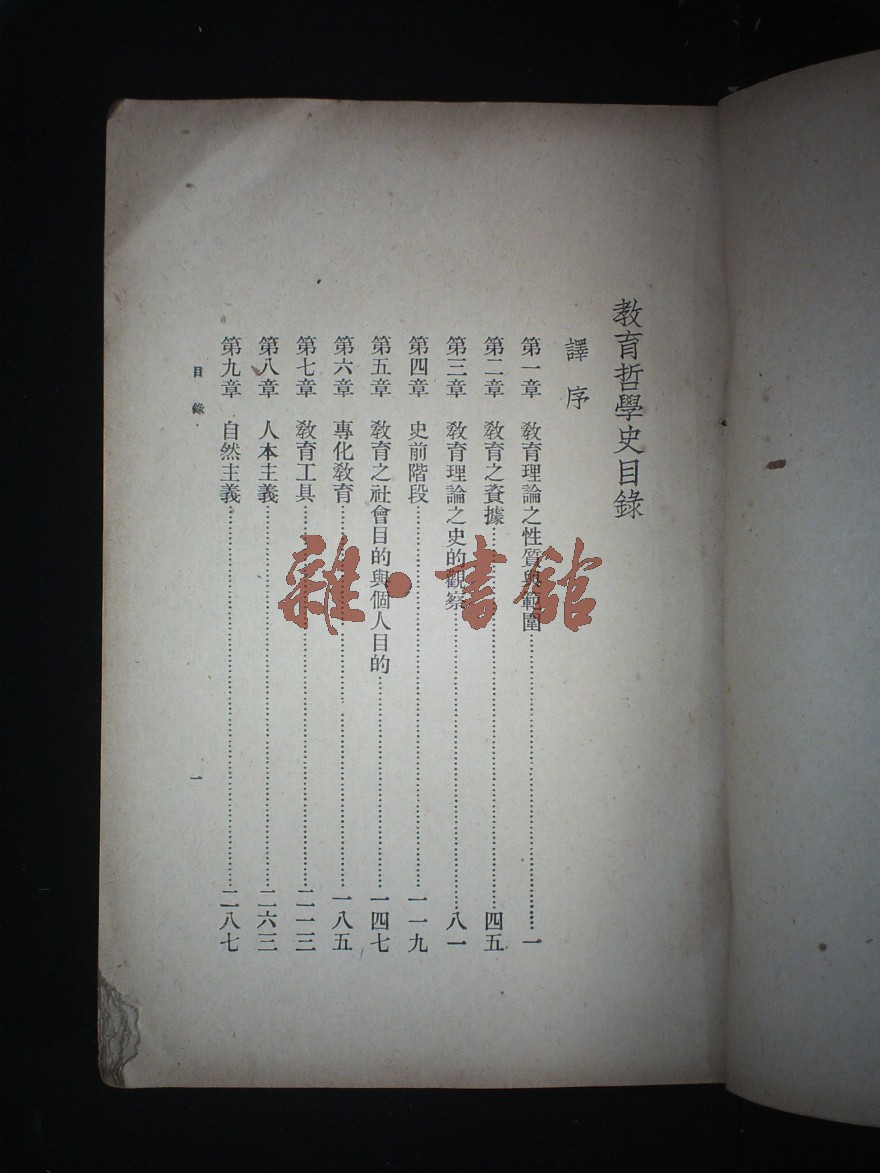 教育哲學史目錄
譯序
第一章 教育理論之性質與範圍……一
第二章 教育之資據……四五
第三章 教育理論之史的觀察……八一
第四章 史前階段……一一九
第五章 教育之社會目的與個人目的……一四七
第六章 專化教育……一八五
第七章 教育工具……二一三
第八章 人本主義……二六三
第九章 自然主義……二八七
目錄
一
雜·書館